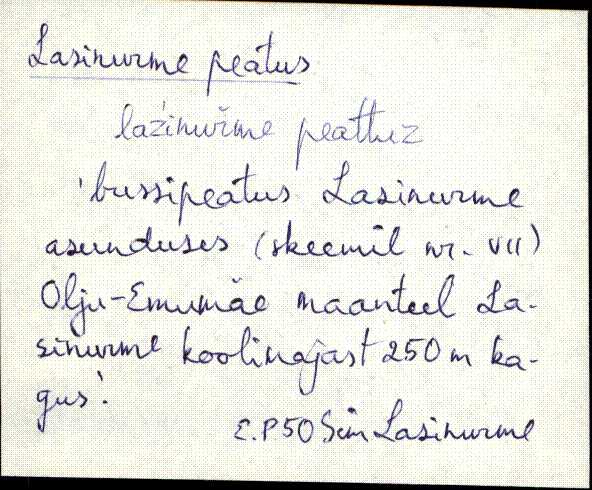 Lasinurme peatus
laźinuřme peattuz
'bussipeatus Lasinurme
asunduses (skeemil nr. VII)
Olju-Emumäe maanteel La-
sinurme koolimajast 250 m ka-
gus'.
E.P50 Sim Lasinurme